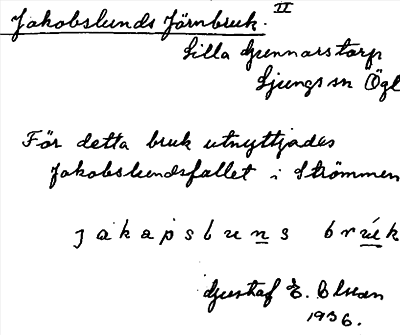 Jakobslunds Järnbruk. II
Lilla Gunnarstorp
Ljungs sn Ögl
För detta bruk utnyttjades
Jakobslundsfallet i Strömmen
j a k a p s l u n s b r ú k
Gustaf E. Olson
1936.